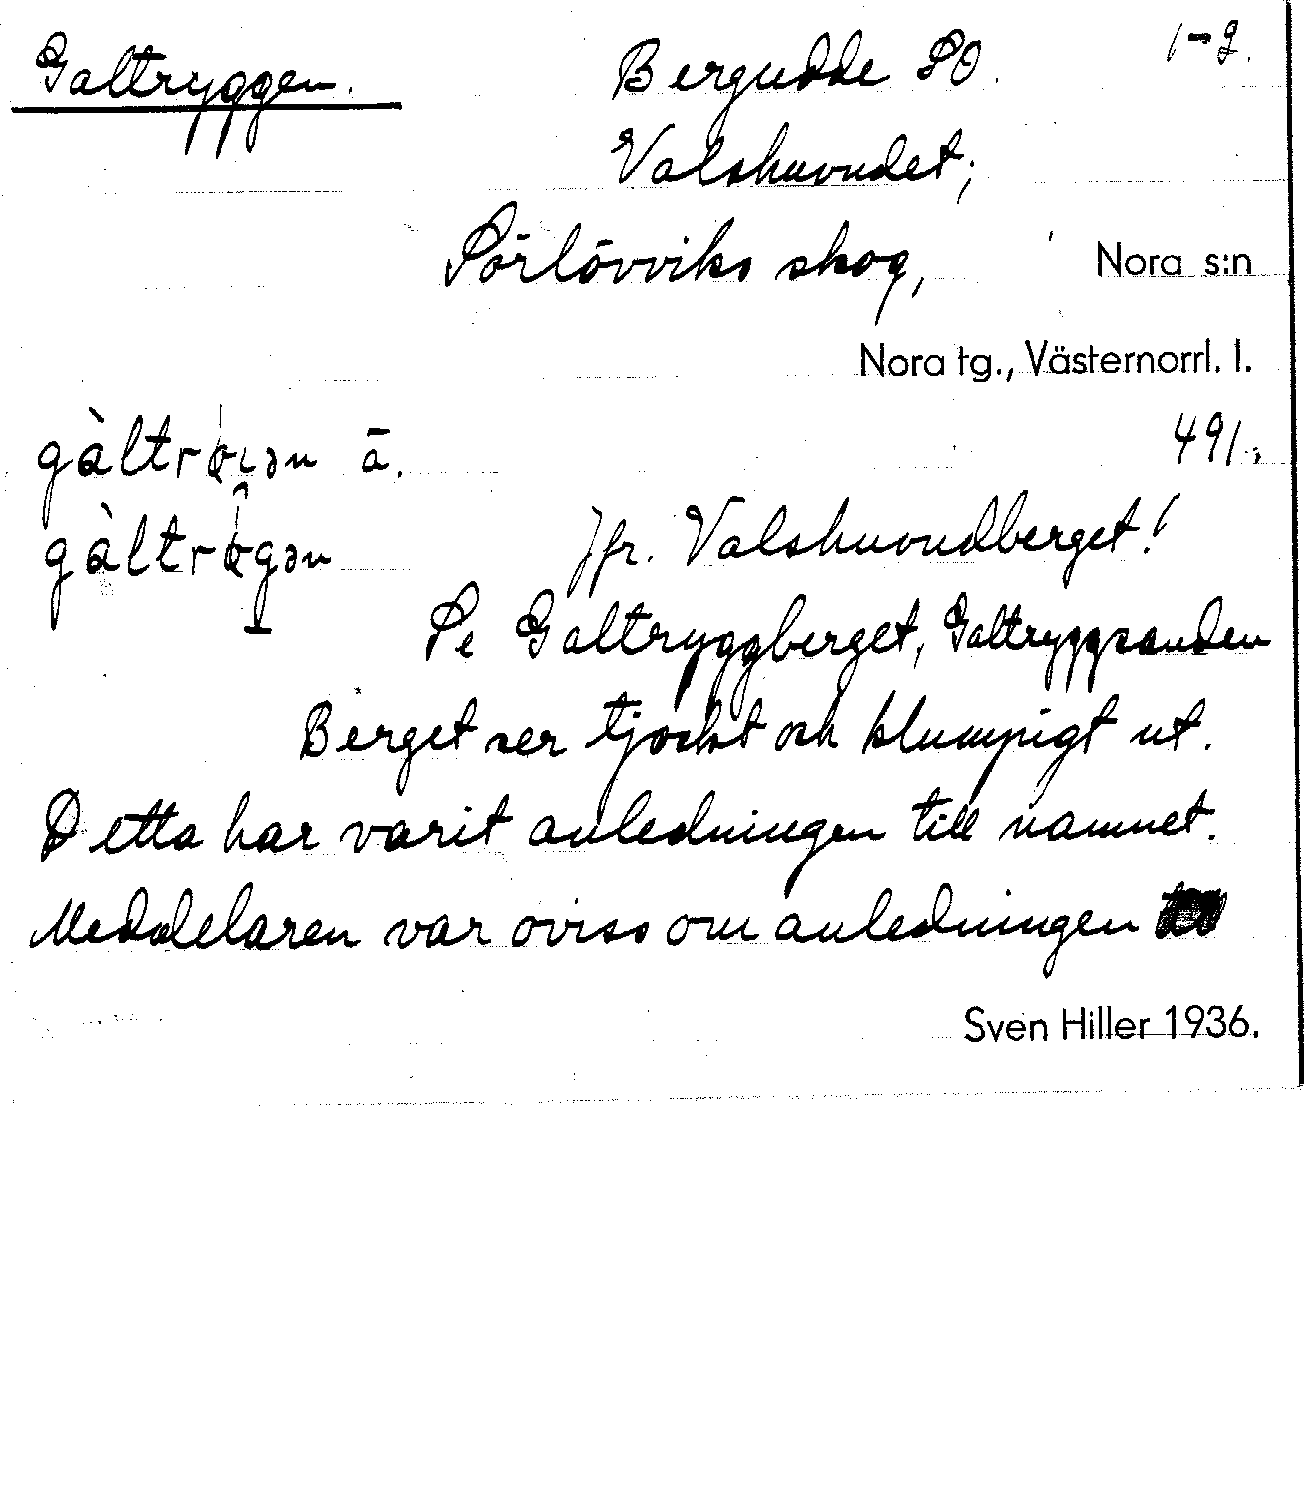 Galtryggen. Bergudde SO. 1-2.
Valshuvudet;
Sörlövviks skog, Nora s:n
Nora tg., Västernorrl. l.
ä. 491.
Jfr. Valshuvudberget!
Se Galtryggberget, Galtryggsanden
Berget ser tjockt och klumpigt ut.
Detta har varit anledningen till namnet.
Meddelaren var oviss om anledningen
Sven Hiller 1936.